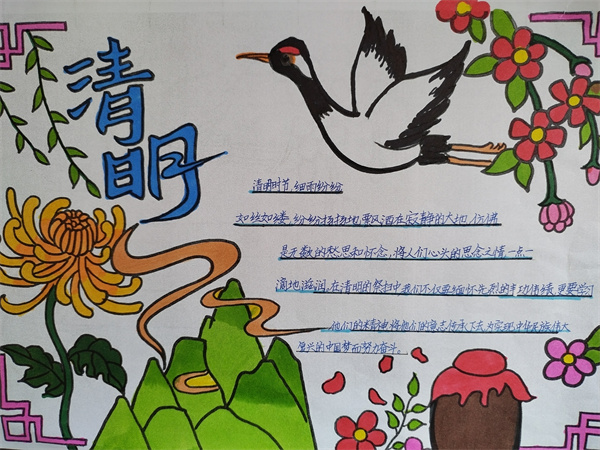 清明
清明时节,细雨纷纷
如丝如缕,纷纷扬扬地飘洒在寂静的大地,仿佛
是无数的愁思和怀念,将人们心头的思念之情一点一
滴地滋润。在清明的祭扫中我们不仅要缅怀先烈的丰功伟绩,更要学习
他们的精神,将他们的意志传承下去,为实现中华民族伟大
复兴的中国梦而努力奋斗。